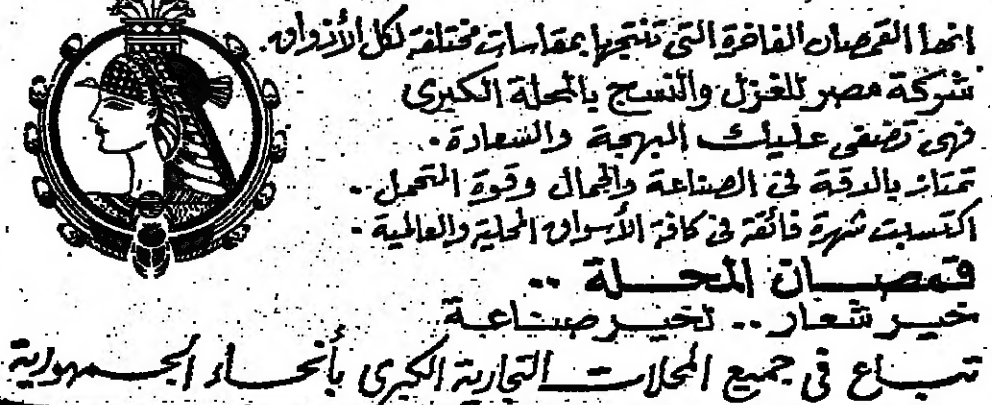 انها القمصان الفاخرة التى تنتجها بمقاسات مختلفة لكل الأذواق.
شركة مصر للغزل والنسج بالمحلة الكبرى
فهى تضفى عليك البهجة والسعادة..
تمتاز بالدقة فى الصناعة والجمال وقوة التحمل..
اكتسبت شهرة فائقة فى كافة الأسواق المحلية والعالمية -
قمصان المحلة ..
خير شعار .. لخير صناعة
تباع فى جميع المحلات التجارية الكبرى بأنحاء الجمهورية